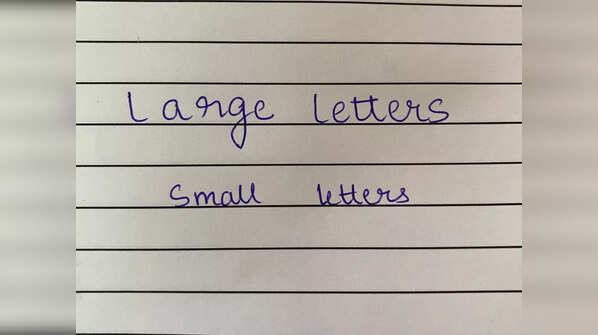 Large letters
Small letters